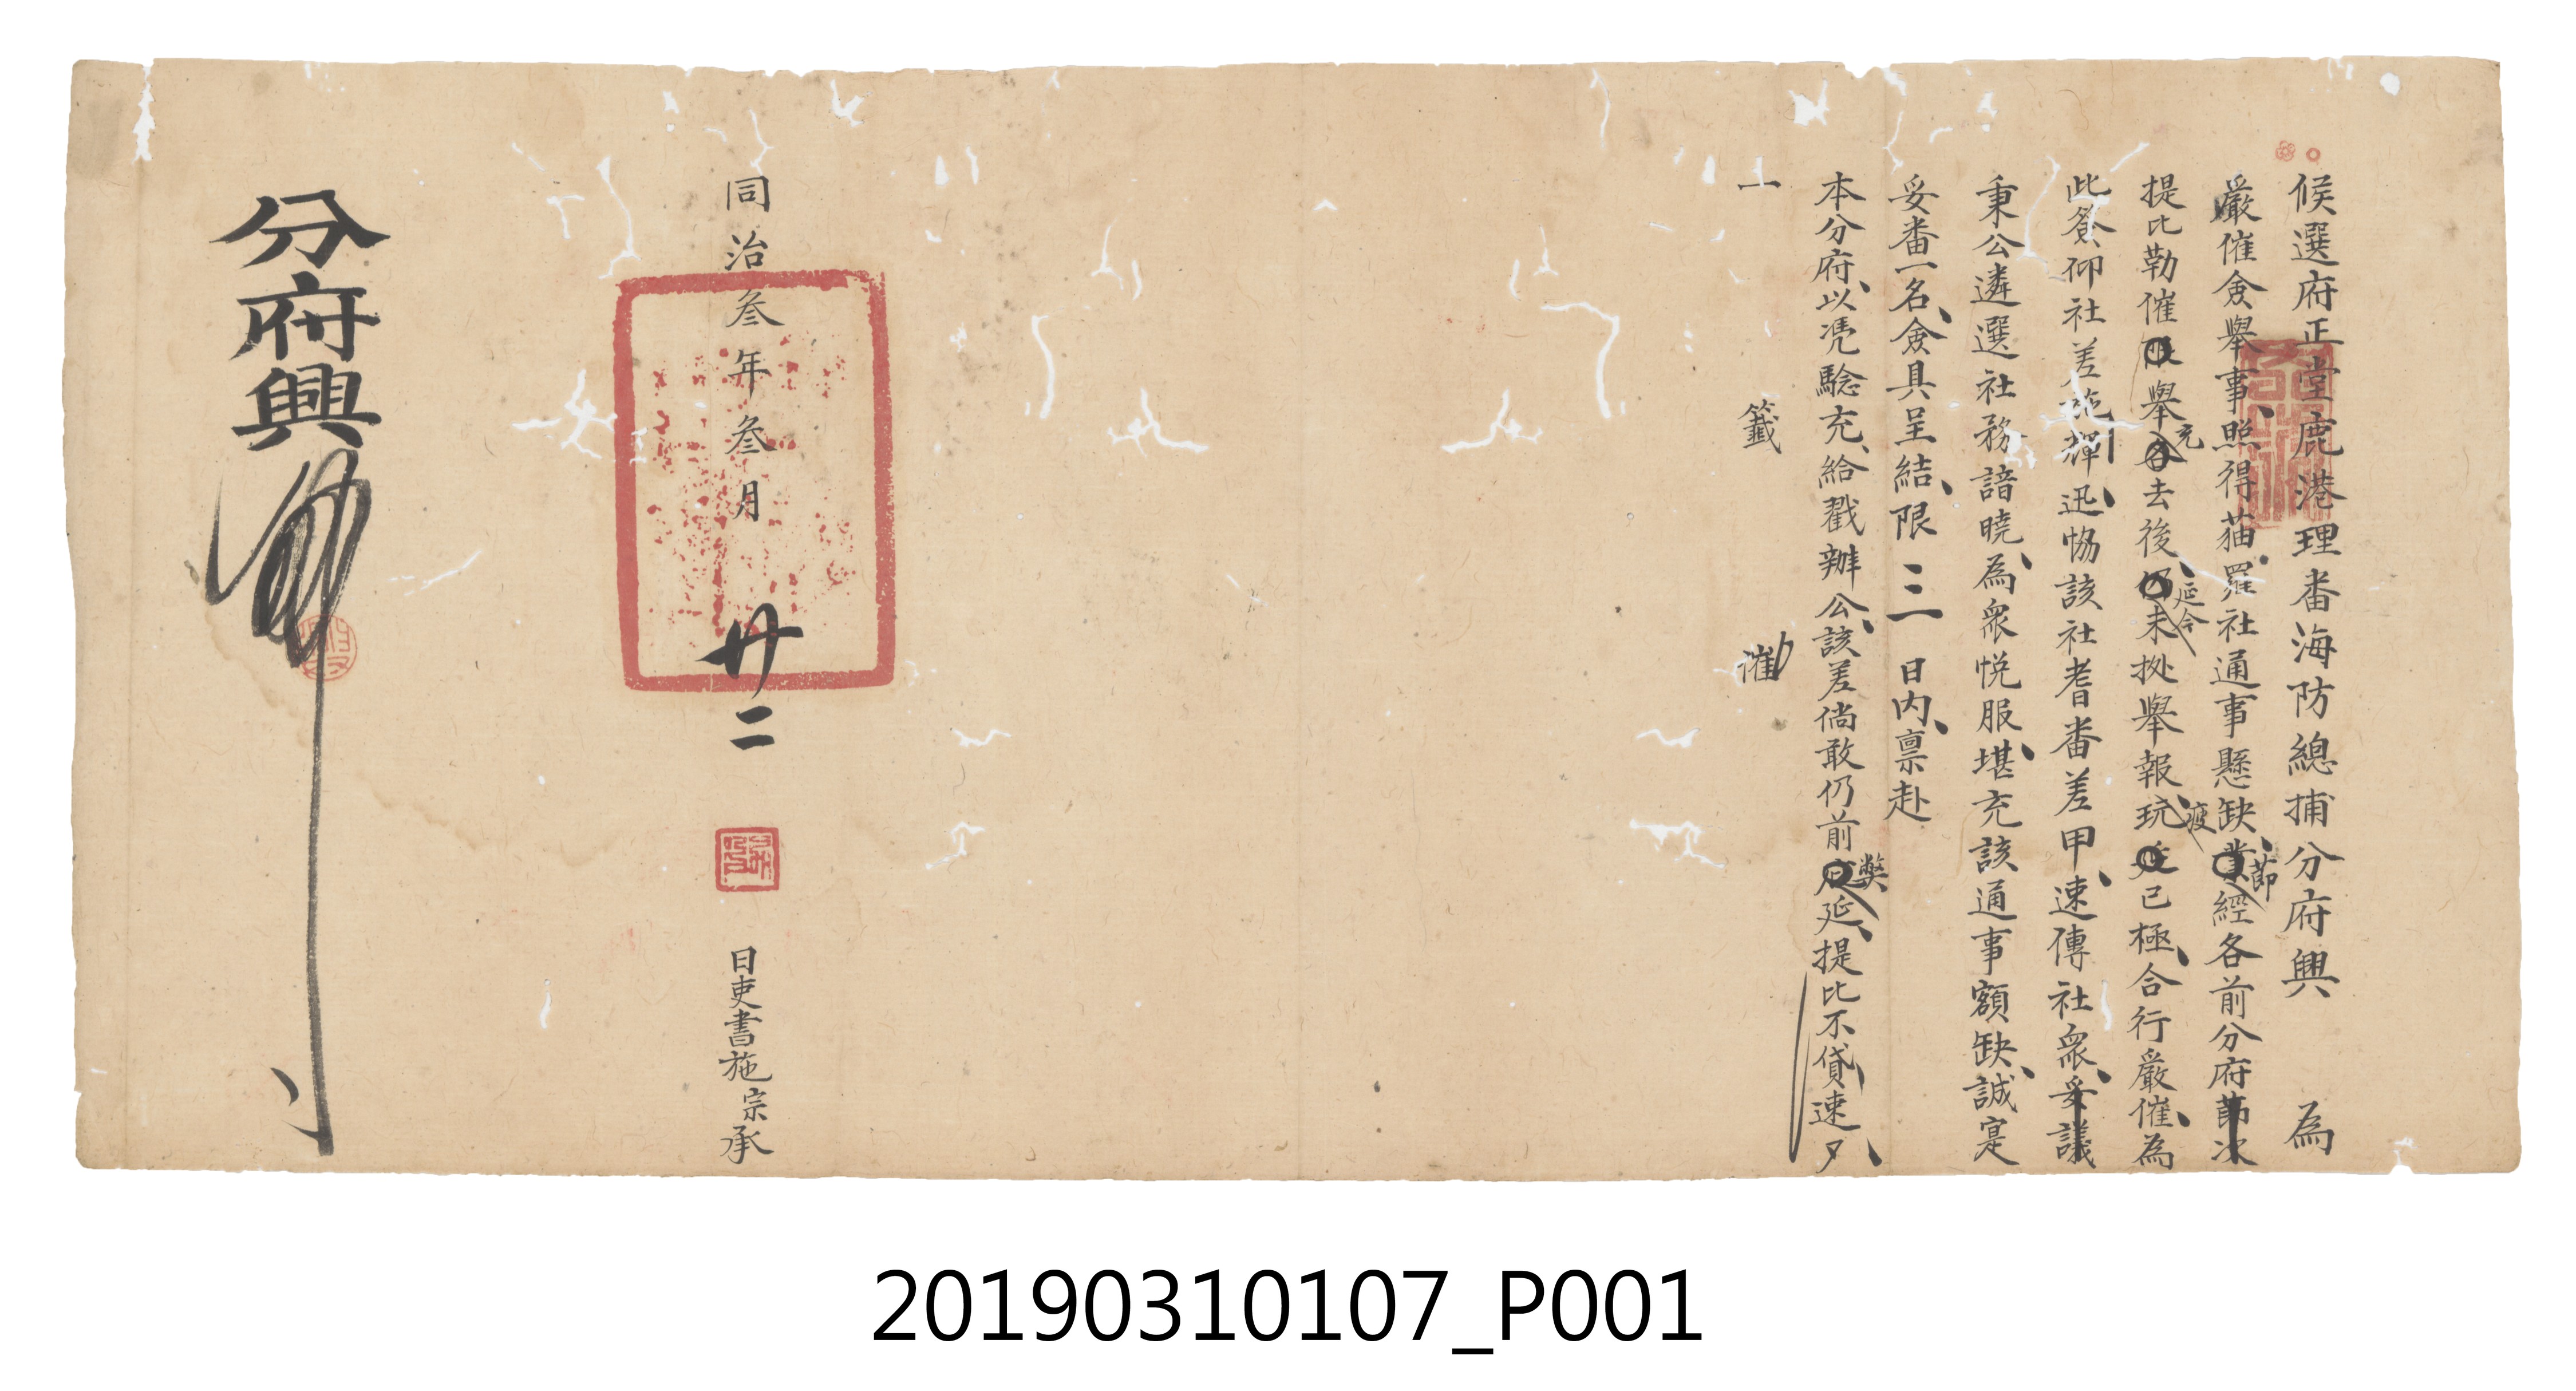 候選府正堂鹿港理番海防總捕分府興　為
嚴催僉舉事照得猫羅社通事懸缺節經各前分府節次
提比勒催舉充去後延今未拠舉報玩疲已極合行嚴催為
此簽仰社差施輝迅協該社耆番差甲速傳社衆妥議
秉公遴選社務諳曉為衆悅服堪充該通事額缺誠寔
妥番一名僉具呈結限三日內禀赴
本分府以凭騐充給戳辦公該差倘敢仍前弊延提比不貸速夕
一　籤　催
同治叁年叁月廿二日吏書施宗承
分府興
20190310107_P001